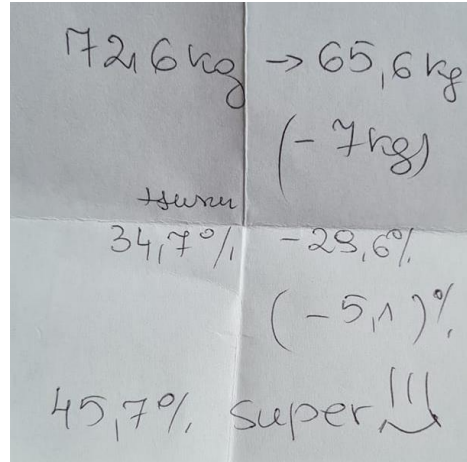 72,6 kg → 65,6 kg
(- 7 kg)
34,7% - 29,6%
(- 5,1)%
45,7% super!!!